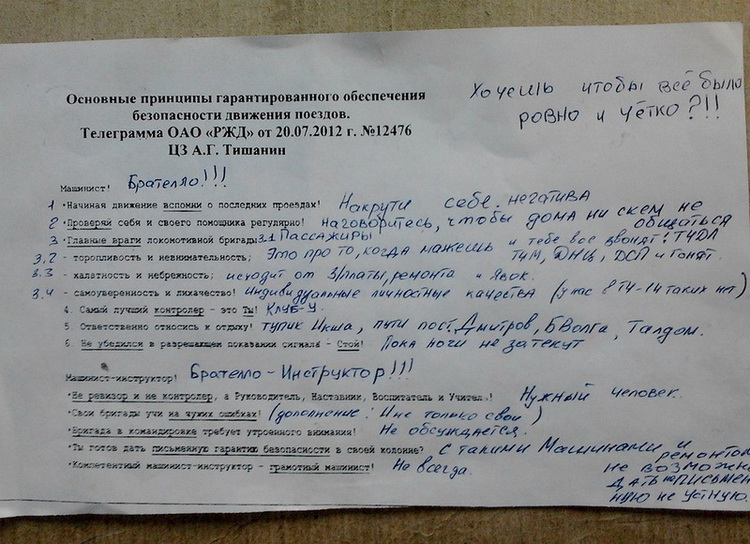 Хочешь чтобы всё было
ровно и чётко?!!
Основные принципы гарантированного обеспечения
безопасности движения поездов.
Телеграмма ОАО «РЖД» от 20.07.2012 г. №12476
ЦЗ А.Г. Тишанин
Машинист! Брателло!!!
1 •Начиная движение вспомни о последних проездах! Накрути себе негатива
2 •Проверяй себя и своего помощника регулярно! наговоритесь, чтобы дома ни с кем не общаться
3 •Главные враги локомотивной бригады: 3.1 Пассажиры
3.2 - торопливость и невнимательность; Это про то, когда мажешь и тебе все звонят: ТЧДЛ
ТЧМ, ДНЦ, ДСП и Гонят.
3.3 - халатность и небрежность; исходит от З/платы, ремонта и явок.
3.4 - самоуверенность и лихачество! Индивидуальные личностные качества (у нас в ТЧ-14 таких нет)
4. Самый лучший контролер - это Ты! КЛУБ-У.
5. Ответственно относись к отдыху! тупик Икша, пути пост. Дмитров, БВолга, Талдом.
6. Не убедился в разрешающем показании сигнала - Стой! Пока ноги не затекут
Машинист-инструктор! Брателло-Инструктор!!!
•Не ревизор и не контролер, а Руководитель, Наставник, Воспитатель и Учитель! Нужный человек.
•Свои бригады учи на чужих ошибках! (дополнение: И не только свои)
•Бригада в командировке требует утроенного внимания! Не обсуждается.
•Ты готов дать письменную гарантию безопасности в своей колонне? С такими Машинами и
ремонтом
не возможно
дать ни письмен
ную не устную.
•Компетентный машинист-инструктор - грамотный машинист! Не всегда.